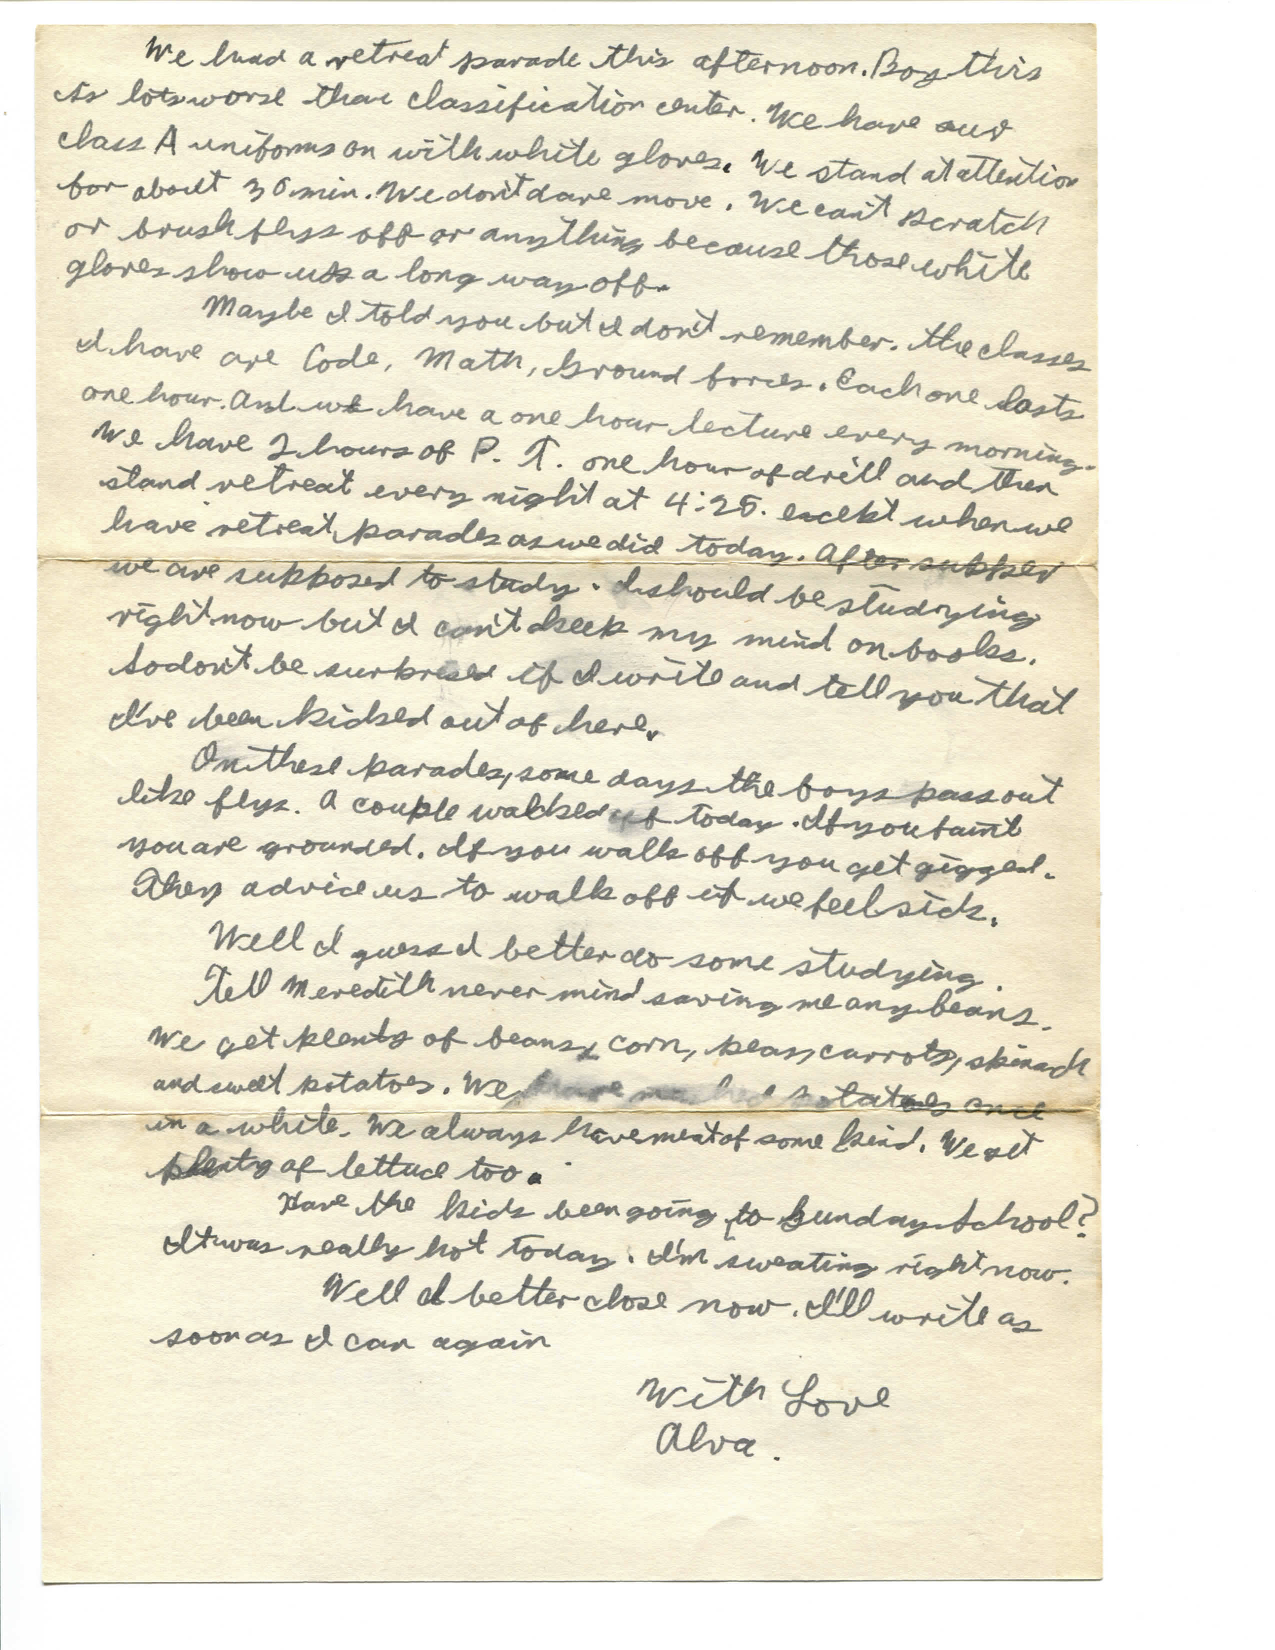 We had a retreat parade this afternoon. Boy this
is lots worse than classification center. We have our
class A uniforms on with white gloves. We stand at attention
for about 30 min. We don't dare move. We can't scratch
or brush flys off or anything because those white
gloves show up a long way off.
Maybe I told you but I don't remember. The classes
I have are Code, Math, Ground forces. Each one lasts
one hour. And we have a one hour lecture every morning.
We have 2 hours of P. T. one hour of drill and then
stand retreat every night at 4:25. except when we
have retreat parades as we did today. After supper
we are supposed to study. I should be studying
right now but I can't keep my mind on books.
So don't be surprised if I write and tell you that
I've been kicked out of here.
On these parades, some days the boys pass out
like flys. A couple walked off today. If you faint
you are grounded. If you walk off you get gigged.
They advice us to walk off if we feel sick.
Well I guess I better do some studying.
Tell Meredith never mind saving me any beans.
We get plenty of beans, corn, peas, carrots, spinach
and sweet potatoes. We have mashed potatoes once
in a while. We always have meat of some kind. We get
plenty of lettuce too.
Have the kids been going to Sunday School?
It was really hot today. I'm sweating right now.
Well I better close now. I'll write as
soon as I can again
With Love
Alva.